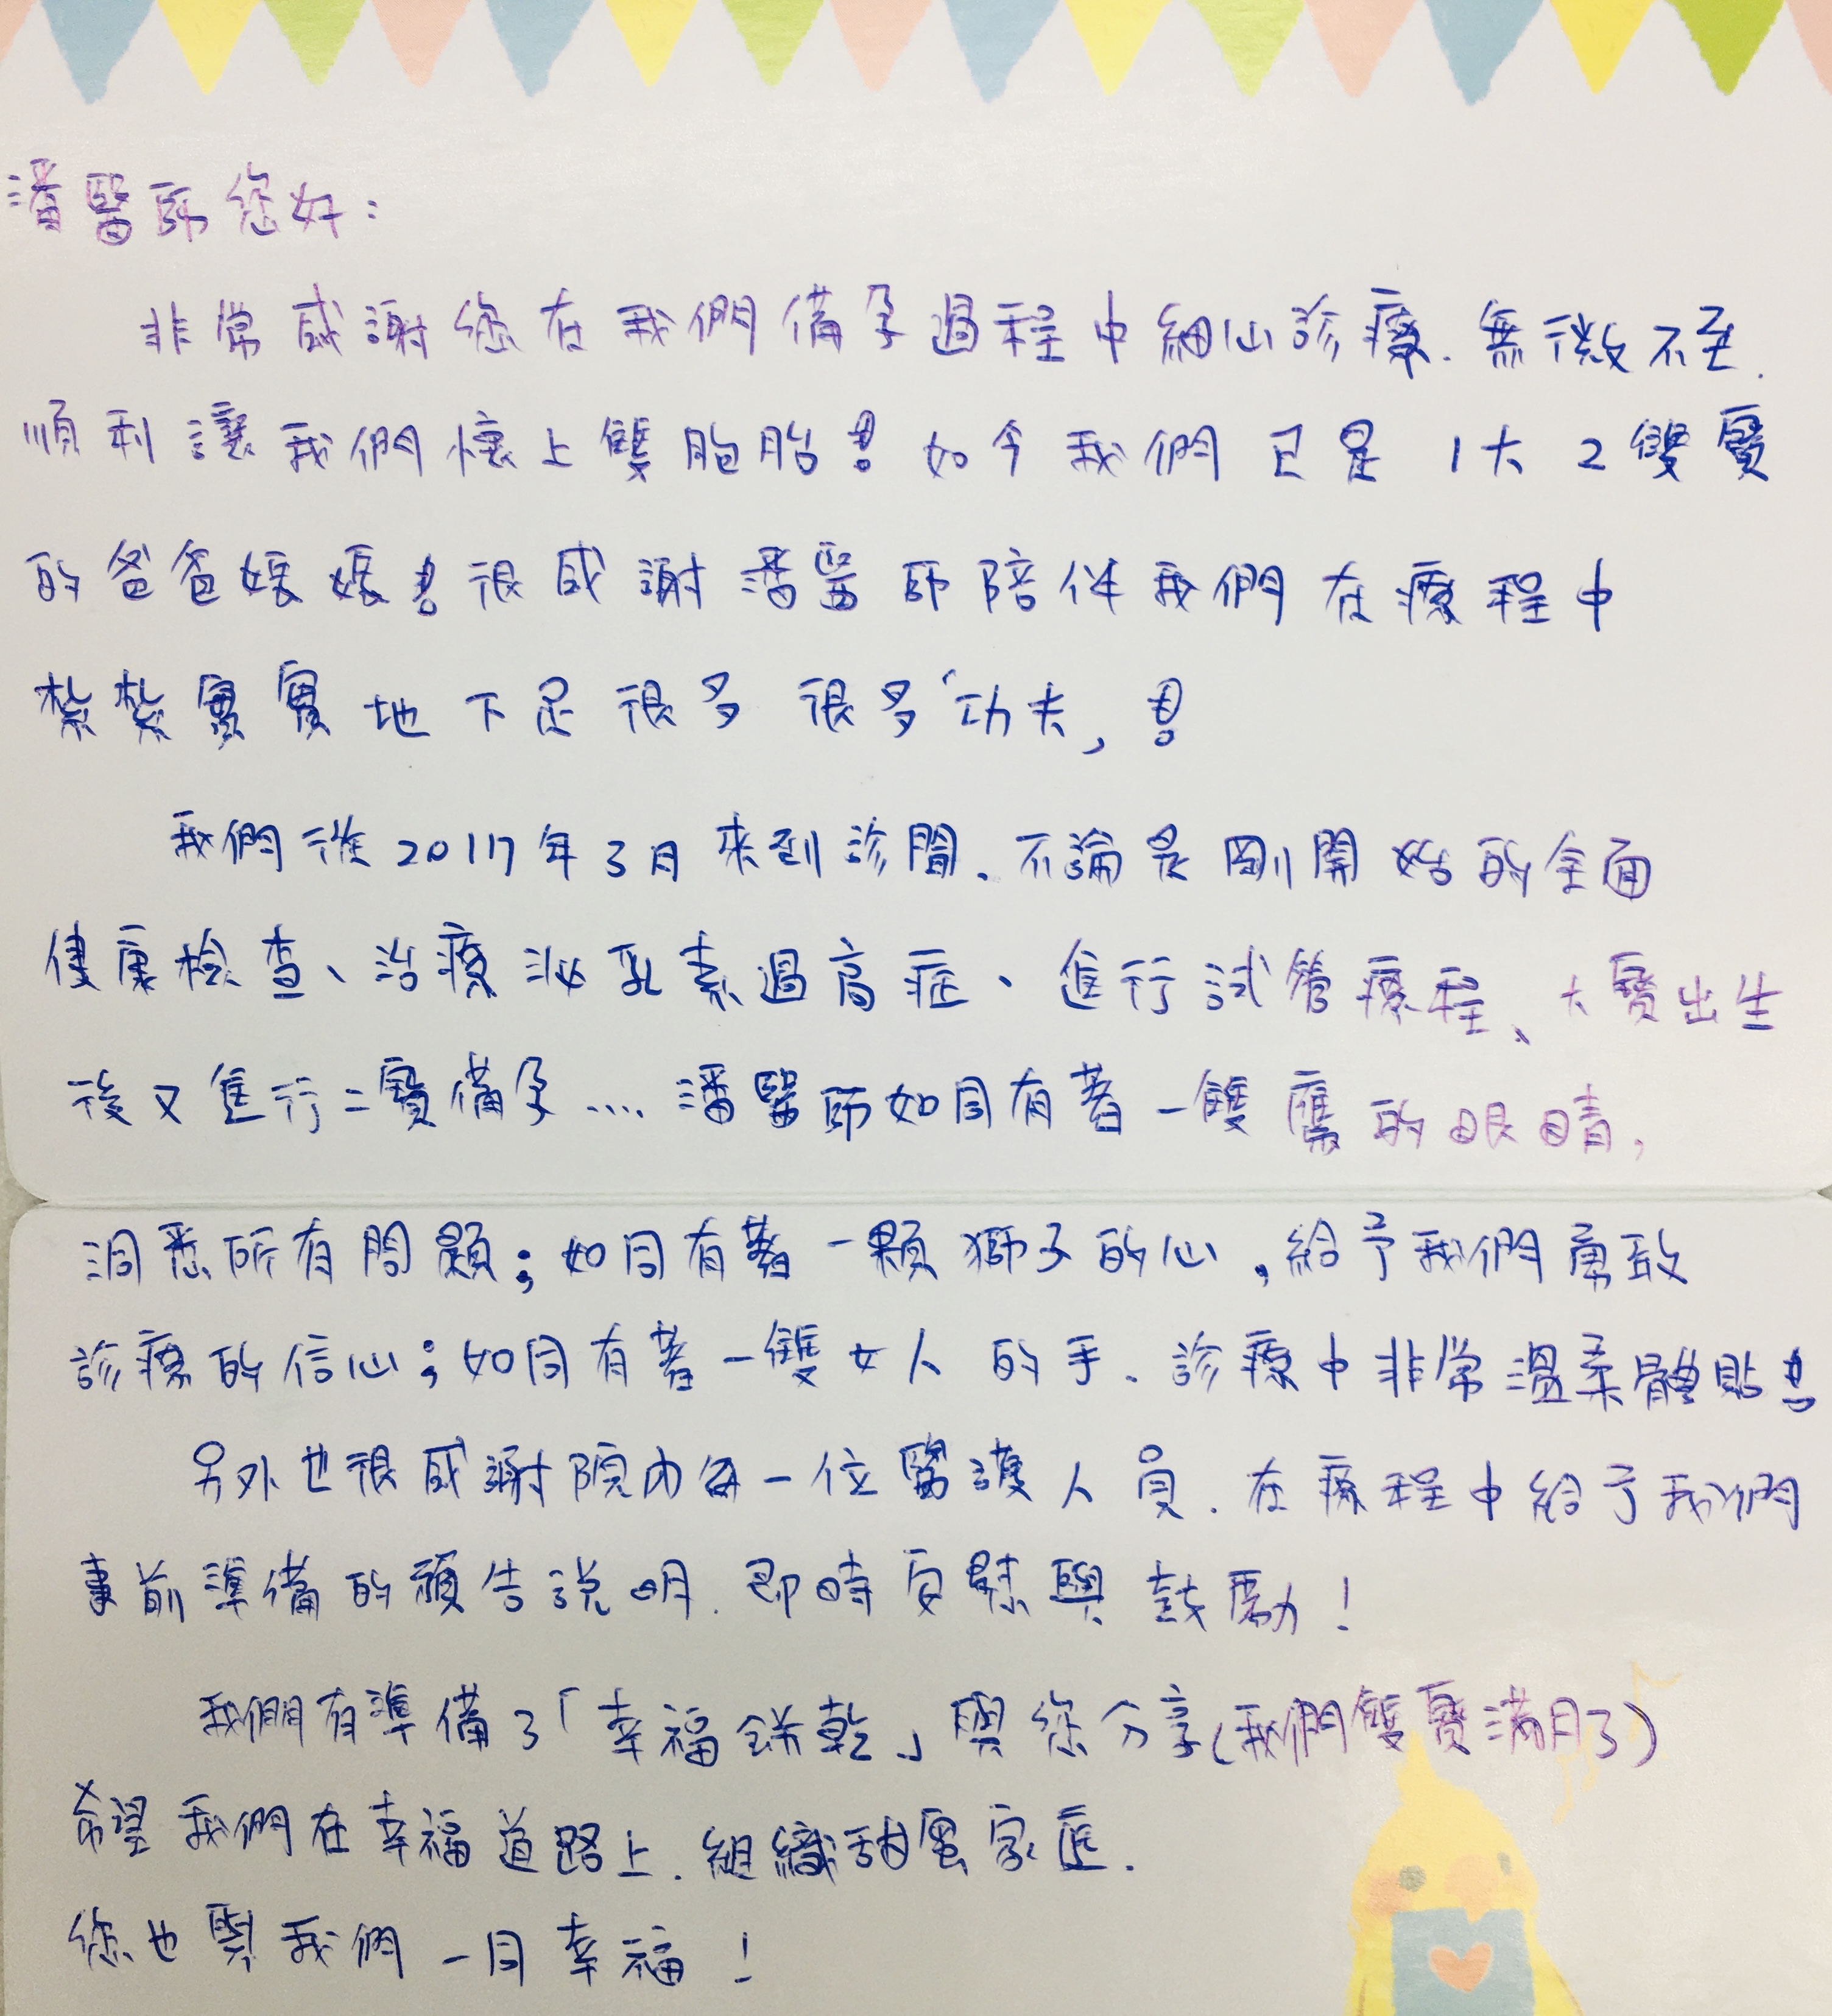 潘醫師您好:
非常感謝您在我們備孕過程中細心診療.無微不至.
順利讓我們懷上雙胞胎!如今我們已是1大2雙寶
的爸爸媽媽!很感謝潘醫師陪伴我們在療程中
紮紮實實地下足很多很多「功夫」!
我們從2017年3月來到診間.不論是剛開始的全面
健康檢查、治療泌乳素過高症、進行試管療程、大寶出生
後又進行二寶備孕....潘醫師如同有著一雙鷹的眼睛,
洞悉所有問題;如同有著一顆獅子的心,給予我們勇敢
診療的信心;如同有著一雙女人的手.診療中非常溫柔體貼!
另外也很感謝院內每一位醫護人員.在療程中給予我們
事前準備的預告說明.即時安慰與鼓勵!
我們有準備了「幸福餅乾」與您分享(我們雙寶滿月了)
希望我們在幸福道路上.組織甜蜜家庭.
您也與我們一同幸福!